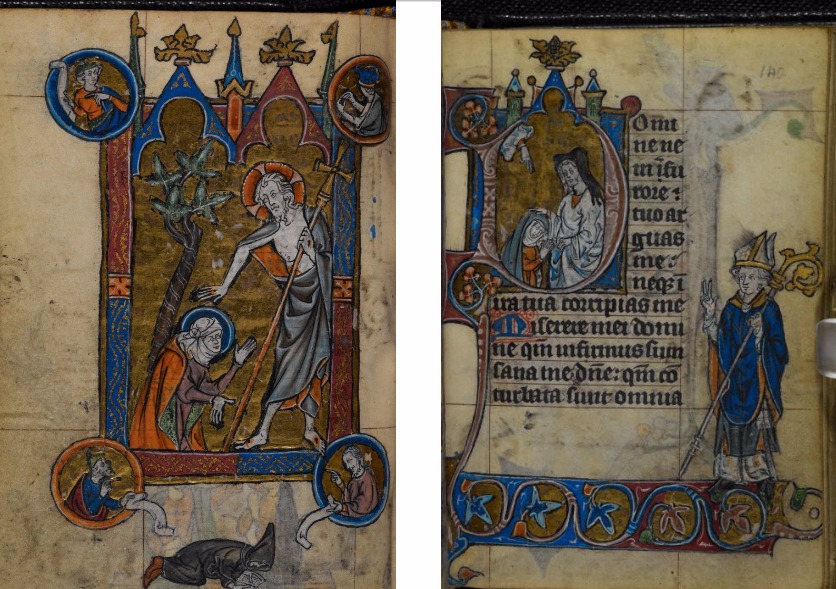 140
Omi
ne ne
in ifu
rore :
tuo ar
guas
me :
neqz i
ira tua corripias me
Miserere mei domi
ne qm infirmus sum
sana me dne : qm co
turbata sunt omnia